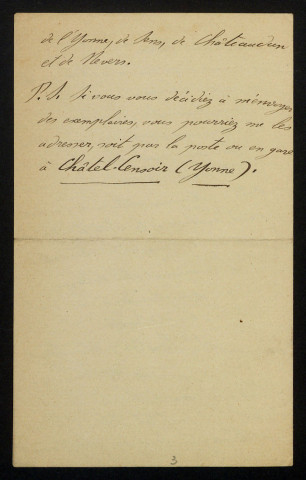 de l'Yonne, de Sens, de Châteaudun
et de Nevers.
P.S. si vous vous décidiez à m'envoyer
des exemplaires, vous pourriez me les
adresser, soit par la poste ou en gare
à Châtel-Censoir (Yonne).
3